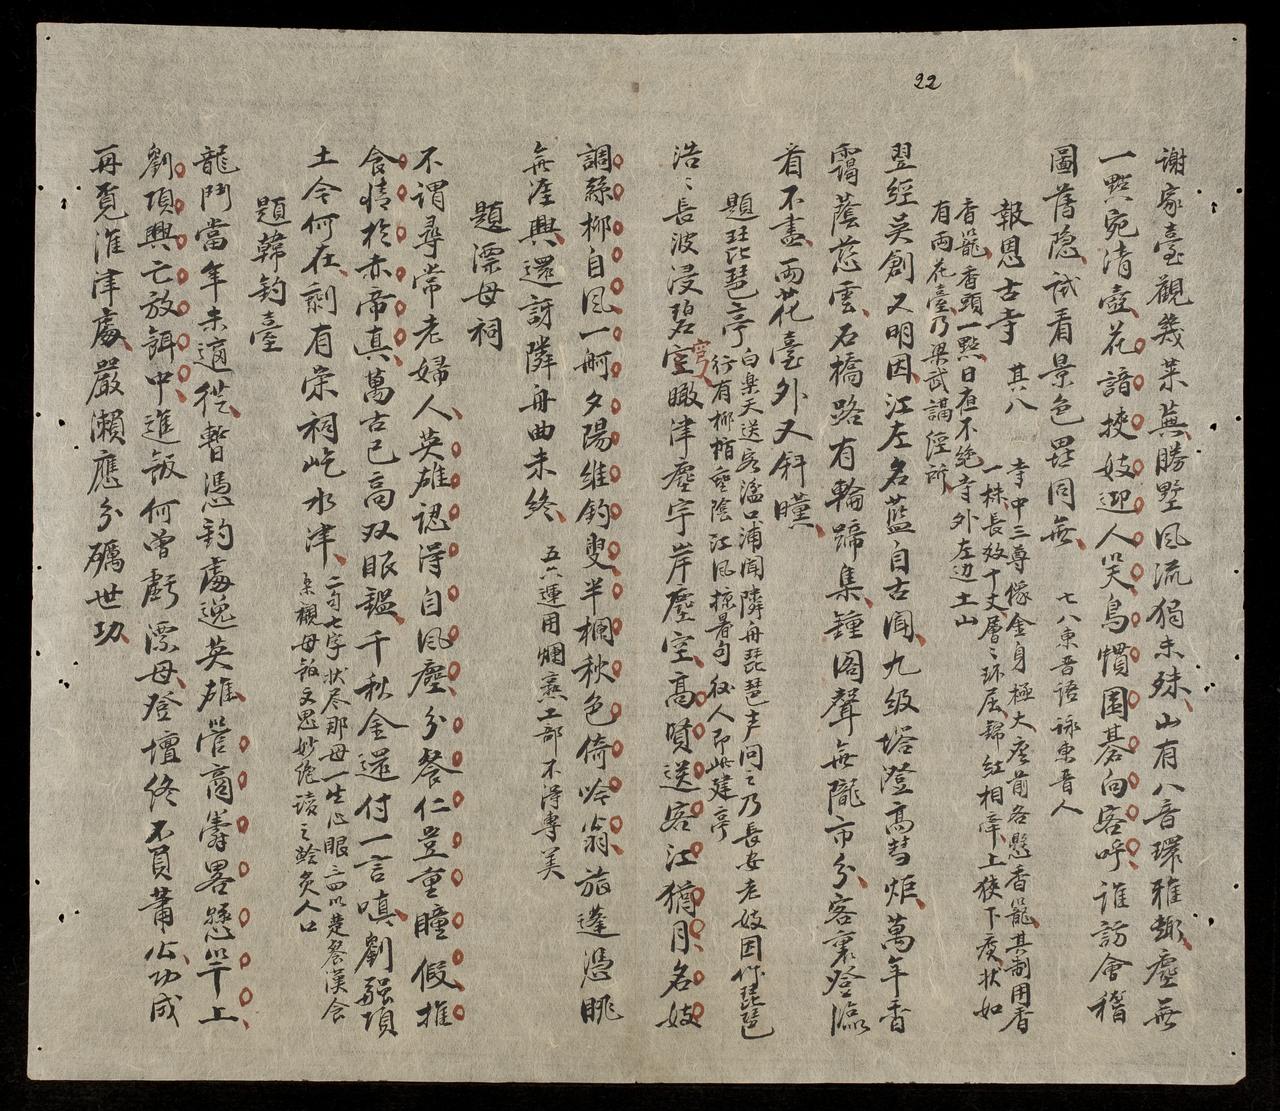 22
謝家臺觀幾菜蕪勝墅風流猶未殊山有八音環雅趣塵無
一點宛清壺花諳挾妓迎人笑鳥慣圍碁向客呼誰訪會稽
圖舊隐試看景色畧同無 七八東晋語詠東晋人
報恩古寺 其八 寺中三尊像金身極大座前各懸香篭其制用香
一株長数十丈層〻环屈錦紅相牽上狹下廣状如
香篭香頭一點日夜不绝寺外左边土山
有雨花臺乃梁武講經所
翌經吴創又明因江左名藍自古闻九級塔澄高彗炬萬年香
靄蔭慈雲石橋路有輪蹄集鍾阁聲無隴市分客裏登臨
看不盡雨花臺外又斜曛
題琵琶亭 白楽天送客湓口浦闻隣舟琵琶声问之乃長安老妓因作琵琶
行有柳栢垂陰江風掠暑句後人即此建亭
浩〻長波浸碧空穹瞰津塵宇岸塵空髙賢送客江猶月名妓
調絲柳自風一舸夕陽维釣叟半欄秋色倚吟翁旅蓬憑眺
無涯興還訝隣舟曲未終 五六運用爛熹工部不得專美
題漂母祠
不谓尋常老婦人英雄認淂自風塵分餐仁豈重瞳假推
食情於赤帝真萬古已高双眼鑑千秋金還付一言嗔劉蹶項
土今何在剩有荣祠屹水津 二句七字状尽那母一生心眼 以楚餐漢食
来襯母飯文思妙绝读之鮯炙人口
題韓釣臺
龍門當年未適從暫憑釣處逸英雄 商籌畧懸竿上
劉項興亡放餌中進飯何曾虧漂母登壇终不負萧公功成
再覓淮津處嚴瀨應分礪世功